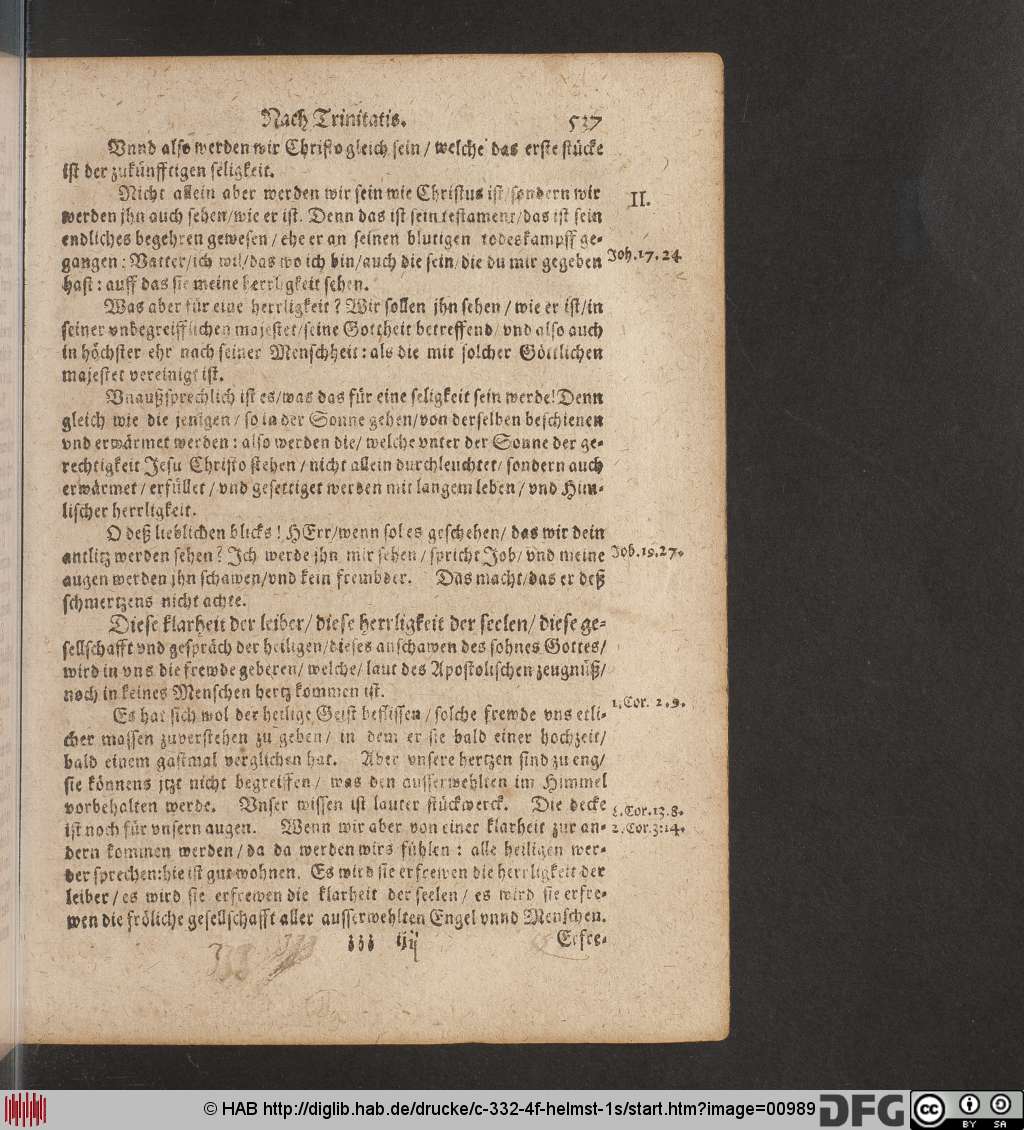 Nach Trinitatis. 537
Vnnd also werden wir Christo gleich sein / welche das erste stücke
ist der zukünfftigen seligkeit.
Nicht allein aber werden wir sein wie Christus ist / sondern wir
II.
werden jhn auch sehen / wie er ist. Denn das ist sein testament / das ist sein
endliches begehren gewesen / ehe er an seinen blutigen todeskampff ge-
gangen : Vatter / ich wil / das wo ich bin / auch die sein / die du mir gegeben
Joh. 17. 24
hast : auff das sie meine herrligkeit sehen.
Was aber für eine herrligkeit ? Wir sollen jhn sehen / wie er ist / in
seiner vnbegreifflichen majestet / seine Gottheit betreffend / vnd also auch
in höchster ehr nach seiner Menschheit : als die mit solcher Göttlichen
majestet vereinigt ist.
Vnaußsprechlich ist es / was das für eine seligkeit sein werde! Denn
gleich wie die jenigen / so in der Sonne gehen / von derselben beschienen
vnd erwärmet werden : also werden die / welche vnter der Sonne der ge-
rechtigkeit Jesu Christo stehen / nicht allein durchleuchtet / sondern auch
erwärmet / erfüllet / vnd gesettiget werden mit langem leben / vnd Him-
lischer herrligkeit.
O deß lieblichen blicks ! HErr / wenn sol es geschehen / das wir dein
antlitz werden sehen ? Ich werde jhn mir sehen / spricht Job / vnd meine
Job. 19. 27.
augen werden jhn schawen / vnd kein frembder. Das macht / das er deß
schmertzens nicht achte.
Diese klarheit der leiber / diese herrligkeit der seelen / diese ge-
sellschafft vnd gespräch der heiligen / dieses anschawen des sohnes Gottes /
wird in vns die frewde geberen / welche / laut des Apostolischen zeugnüß /
noch in keines Menschen hertz kommen ist.
1. Cor. 2. 9.
Es hat sich wol der heilige Geist beflissen / solche frewde vns etli-
cher massen zuverstehen zu geben / in dem er sie bald einer hochzeit /
bald einem gastmal verglichen hat. Aber vnsere hertzen sind zu eng /
sie könnens jtzt nicht begreiffen / was den ausserwehlten im Himmel
vorbehalten werde. Vnser wissen ist lauter stückwerck. Die decke
1. Cor. 13. 8.
ist noch für vnsern augen. Wenn wir aber von einer klarheit zur an-
2. Cor. 3. 14.
dern kommen werden / da da werden wirs fühlen : alle heiligen wer-
den sprechen: hie ist gut wohnen. Es wird sie erfrewen die herrligkeit der
leiber / es wird sie erfrewen die klarheit der seelen / es wird sie erfre-
wen die fröliche gesellschafft aller ausserwehlten Engel vnnd Menschen.
zzz iiij Erfre-
© HAB http://diglib.hab.de/drucke/c-332-4f-helmst-1s/start.htm?image=00989
DFG
CC BY SA